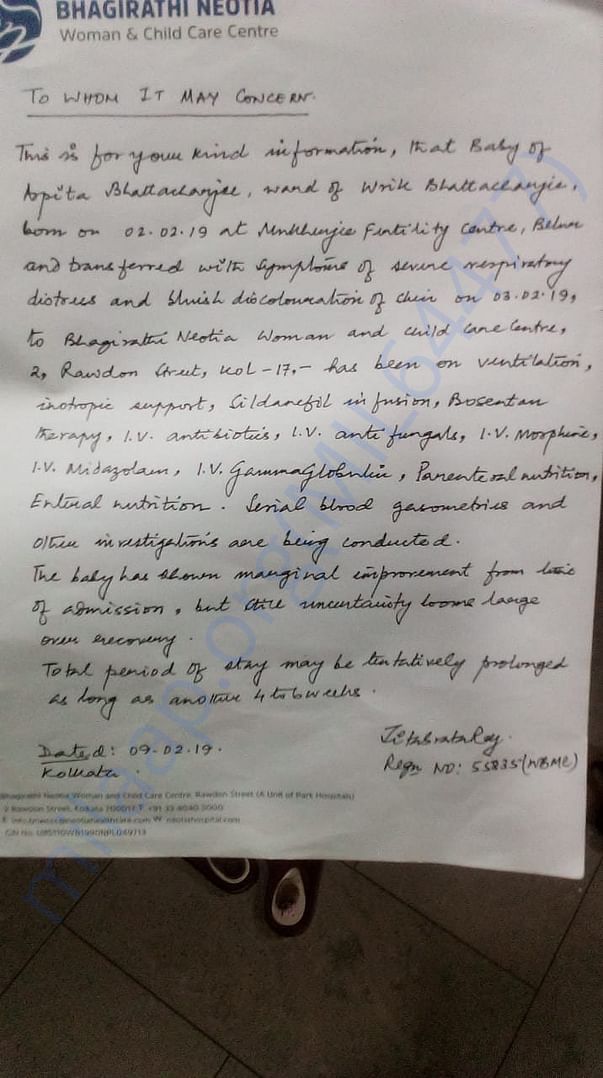 BHAGIRATHI NEOTIA
Woman & Child Care Centre
TO WHOM IT MAY CONCERN.
This is for your kind information, that Baby of
Arpita Bhattacharjee, ward of Writ Bhattacharjee,
born on 02.02.19 at Mukherjee Fertility Centre, Belur
and transferred with symptoms of severe respiratory
distress and bluish discolouration of skin on 03.02.19,
to Bhagirathi Neotia Woman and Child Care Centre,
2, Rawdon Street, Kol-17,- has been on ventilation,
inotropic support, Sildanefil infusion, Bosentan
therapy, I.V. antibiotics, I.V. anti fungals, I.V. Morphine,
I.V. Midazolam, I.V. Gammaglobulin, Parenteral nutrition,
Enteral nutrition. Serial blood gasometries and
other investigations are being conducted.
The baby has shown marginal improvement from time
of admission, but still uncertainty looms large
over recovery.
Total period of stay may be tentatively prolonged
as long as another 4 to 6 weeks.
Dated: 09.02.19.
Kolkata.
Regn NO: 55835 (WBMC)
Bhagirathi Neotia Woman and Child Care Centre, Rawdon Street (A Unit of Park Hospitals)
2 Rawdon Street, Kolkata 700017 T +91 33 4040 5000